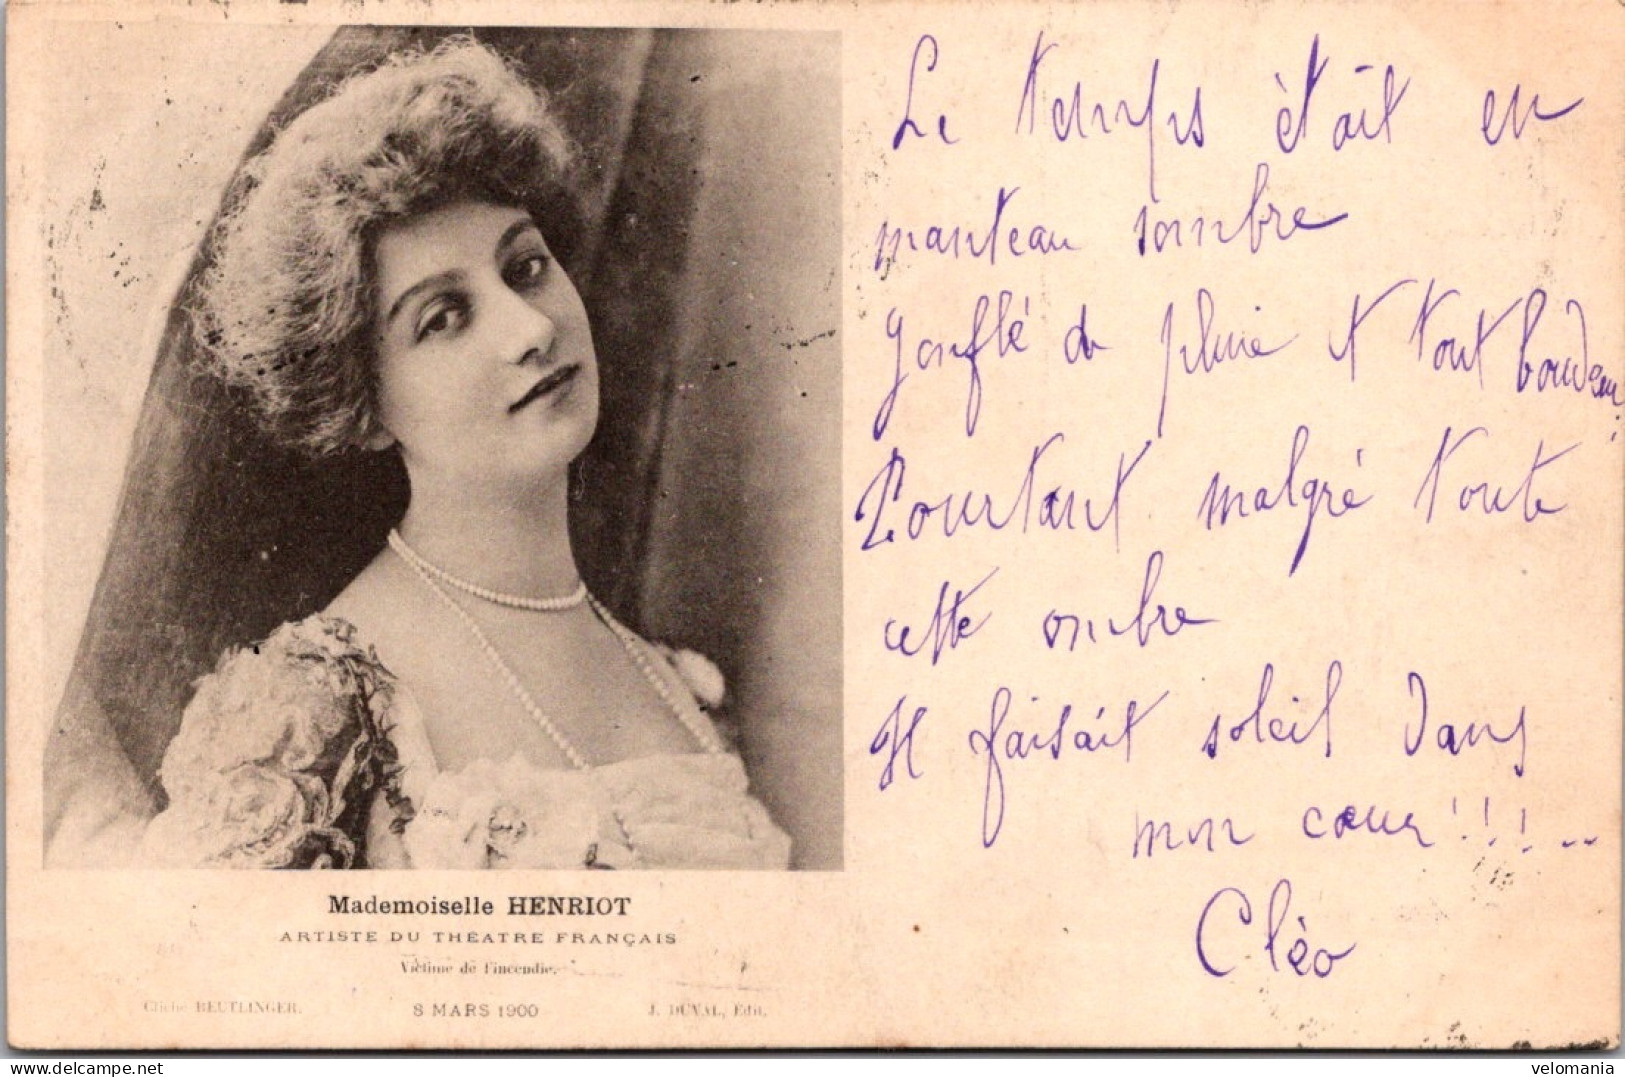 Le temps ètait en
manteau sombre
Gonflé de pluie et tout boudeur.
Pourtant malgré toute
cette ombre
Il faisait soleil dans
mon cœur!!!..
Cléo
Mademoiselle HENRIOT
ARTISTE DU THÉATRE FRANÇAIS
Victime de l'incendie.
Cliché REUTLINGER. 8 MARS 1900 J. DUVAL, Édit.
delcampe.net velomania